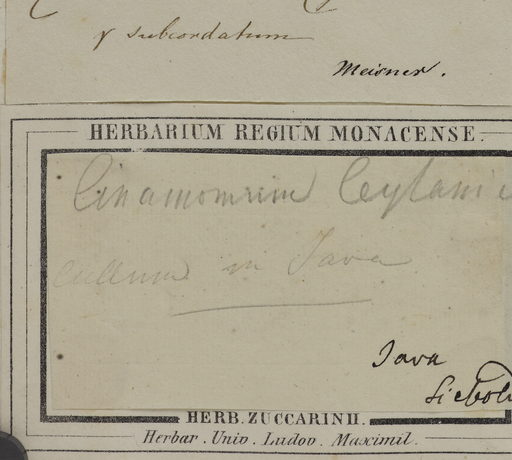 γ subcordatum
Meisner.
HERBARIUM REGIUM MONACENSE.
Cinamomum Ceylani
cultum in Java
Java
Siebol
HERB. ZUCCARINII.
Herbar. Univ. Ludov. Maximil.